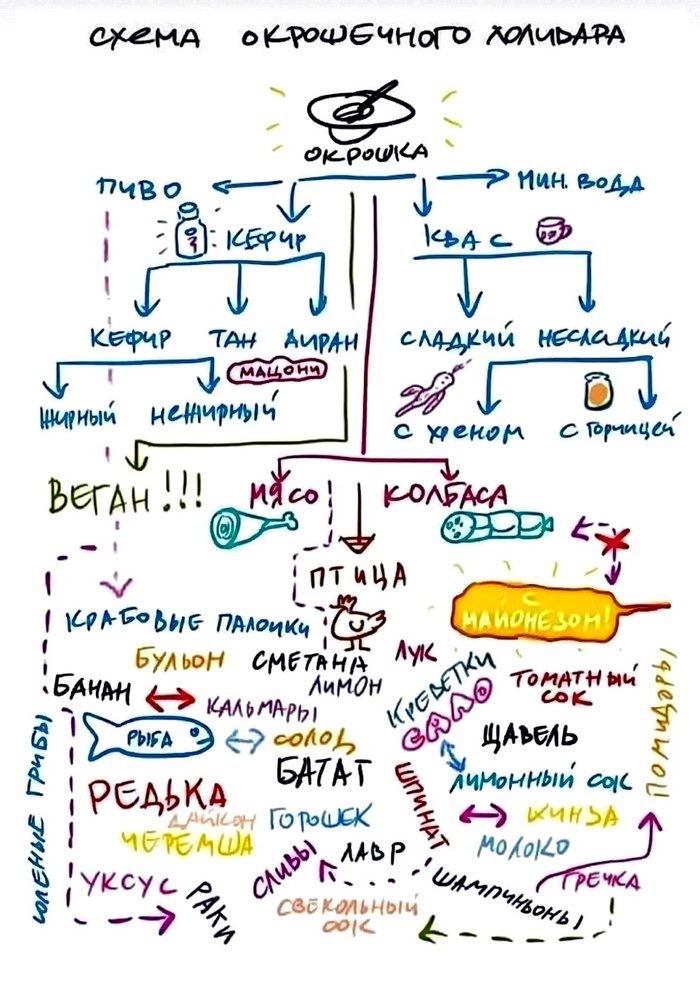 СХЕМА ОКРОШЕЧНОГО ХОЛИВАРА
ОКРОШКА
ПИВО
МИН. ВОДА
КЕФИР
КВАС
КЕФИР ТАН АЙРАН
СЛАДКИЙ НЕСЛАДКИЙ
МАЦОНИ
ЖИРНЫЙ НЕЖИРНЫЙ
С ХРЕНОМ
С ГОРЧИЦЕЙ
ВЕГАН!!!
МЯСО
КОЛБАСА
ПТИЦА
С
МАЙОНЕЗОМ!
КРАБОВЫЕ ПАЛОЧКИ
БУЛЬОН
СМЕТАНА
ЛУК
КРЕВЕТКИ
ТОМАТНЫЙ
СОК
БАНАН
ЛИМОН
КАЛЬМАРЫ
САЛО
ПОМИДОРЫ
РЫБА
СОЛОД
ЩАВЕЛЬ
БАТАТ
ЛИМОННЫЙ СОК
СОЛЕНЫЕ ГРИБЫ
РЕДЬКА
ШПИНАТ
ДАЙКОН
ГОРОШЕК
КИНЗА
ЧЕРЕМША
ЛАВР
МОЛОКО
УКСУС
РАКИ
СЛИВЫ
ШАМПИНЬОНЫ!
ГРЕЧКА
СВЕКОЛЬНЫЙ
СОК